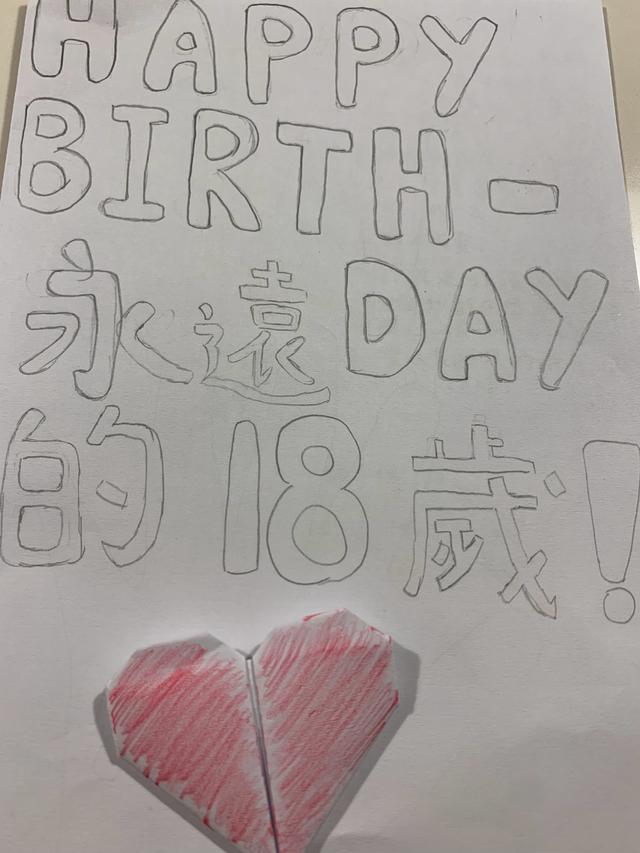 HAPPY
BIRTH-
永遠 DAY
的 18 歲!